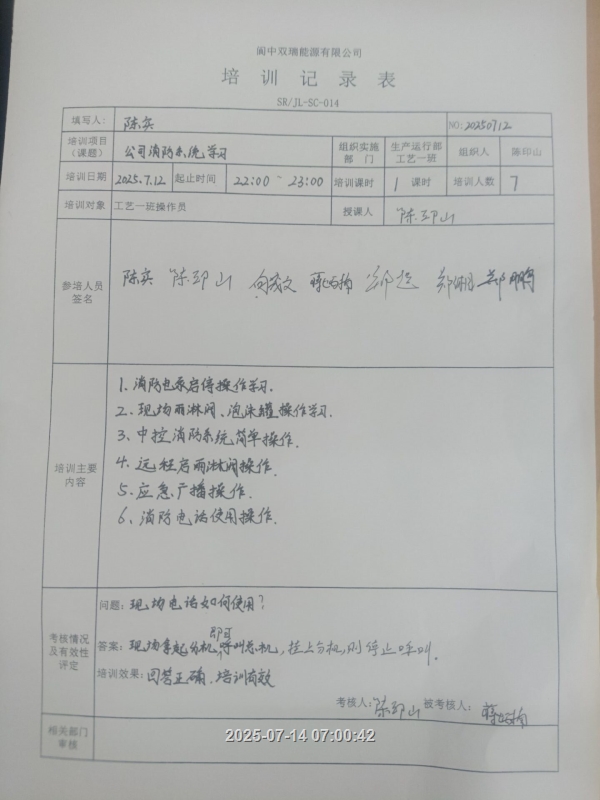 阆中双瑞能源有限公司
培训记录表
SR/JL-SC-014
填写人: 陈实 NO:20250712
培训项目(课题) 公司消防系统学习 组织实施部门 生产运行部工艺一班 组织人 陈印山
培训日期 2025.7.12 起止时间 22:00~23:00 培训课时 1课时 培训人数 7
培训对象 工艺一班操作员 授课人 陈印山
参培人员签名 陈实 陈印山
培训主要内容
1、消防电泵启停操作学习.
2、现场雨淋阀、泡沫罐操作学习.
3、中控消防系统简单操作.
4、远程启雨淋阀操作.
5、应急广播操作.
6、消防电话使用操作.
考核情况及有效性评定
问题:现场电话如何使用?
答案:现场拿起分机,即可呼叫总机,挂上分机,则停止呼叫.
培训效果:回答正确、培训有效
考核人:陈印山 被考核人:
相关部门审核
2025-07-14 07:00:42